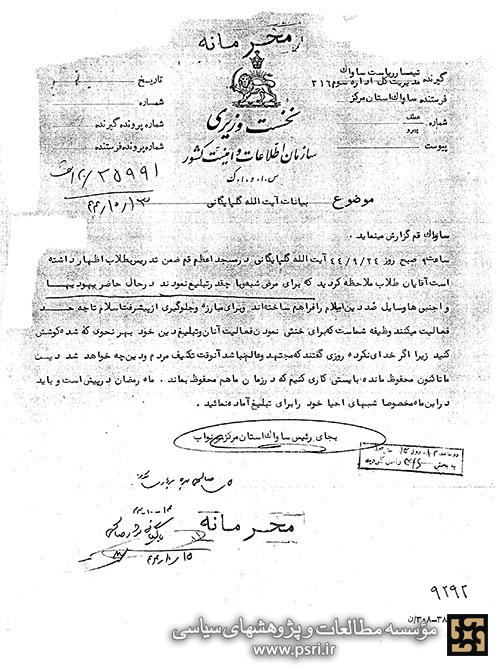 محرمانه
تیمسار ریاست ساواك
گیرنده مدیریت کل اداره سوم ۳۱۶
فرستنده ساواك استان مرکز
شماره: عطف
پیرو
پیوست
تاریخ
شماره
شماره پرونده گیرنده
شماره پرونده فرستنده
نخست وزیری
سازمان اطلاعات و امنیت کشور
س . ا . و . ا . ك
۳۵۹۹۱
۴۴/۱۰/۱۳
موضوع : بیانات آیت الله گلپایگانی
ساواك قم گزارش مینماید .
ساعت ۹ صبح روز ۴۴/۹/۲۴ آیت الله گلپایگانی در مسجد اعظم قم ضمن تدریس بطلاب اظهار داشته
است آقایان طلاب ملاحظه کردید که برای مرض شبه وبا چقدر تبلیغ نمودند در حال حاضر یهودیها
و اجنبی ها وسایل ضد دین اسلام را فراهم ساخته اند و برای مبارزه و جلوگیری از پیشرفت اسلام تا چه حد
فعالیت میکنند وظیفه شماست که برای خنثی نمودن فعالیت آنان و تبلیغ دین خود بهر نحوی که شده کوشش
کنید زیرا اگر خدای نکرده روزی گفتند که مجتهد و عالم نباشد آنوقت تکلیف مردم و دین چه خواهد شد دیـن
ما تاکنون محفوظ مانده بایستی کاری کنیم که در زمان ما هم محفوظ بماند . ماه رمضان در پیش است و باید
در این ماه مخصوصا شبهای احیا خود را برای تبلیغ آماده نمائید .
بجای رئیس ساواك استان مرکز . نواب
محرمانه
۴۴/۱۰/۱۵
۹۲۹۲
۳۰۸-۳۸/ن
مؤسسه مطالعات و پژوهشهای سیاسی
www.psri.ir